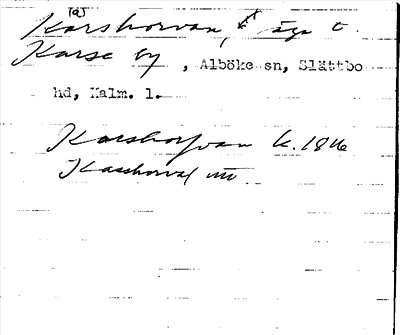 (a)
Karshorvan, äga t.
Karse by, Alböke sn, Slättbo
hd, Kalm. l.
Karshorfvan k. 1846
Karshorva